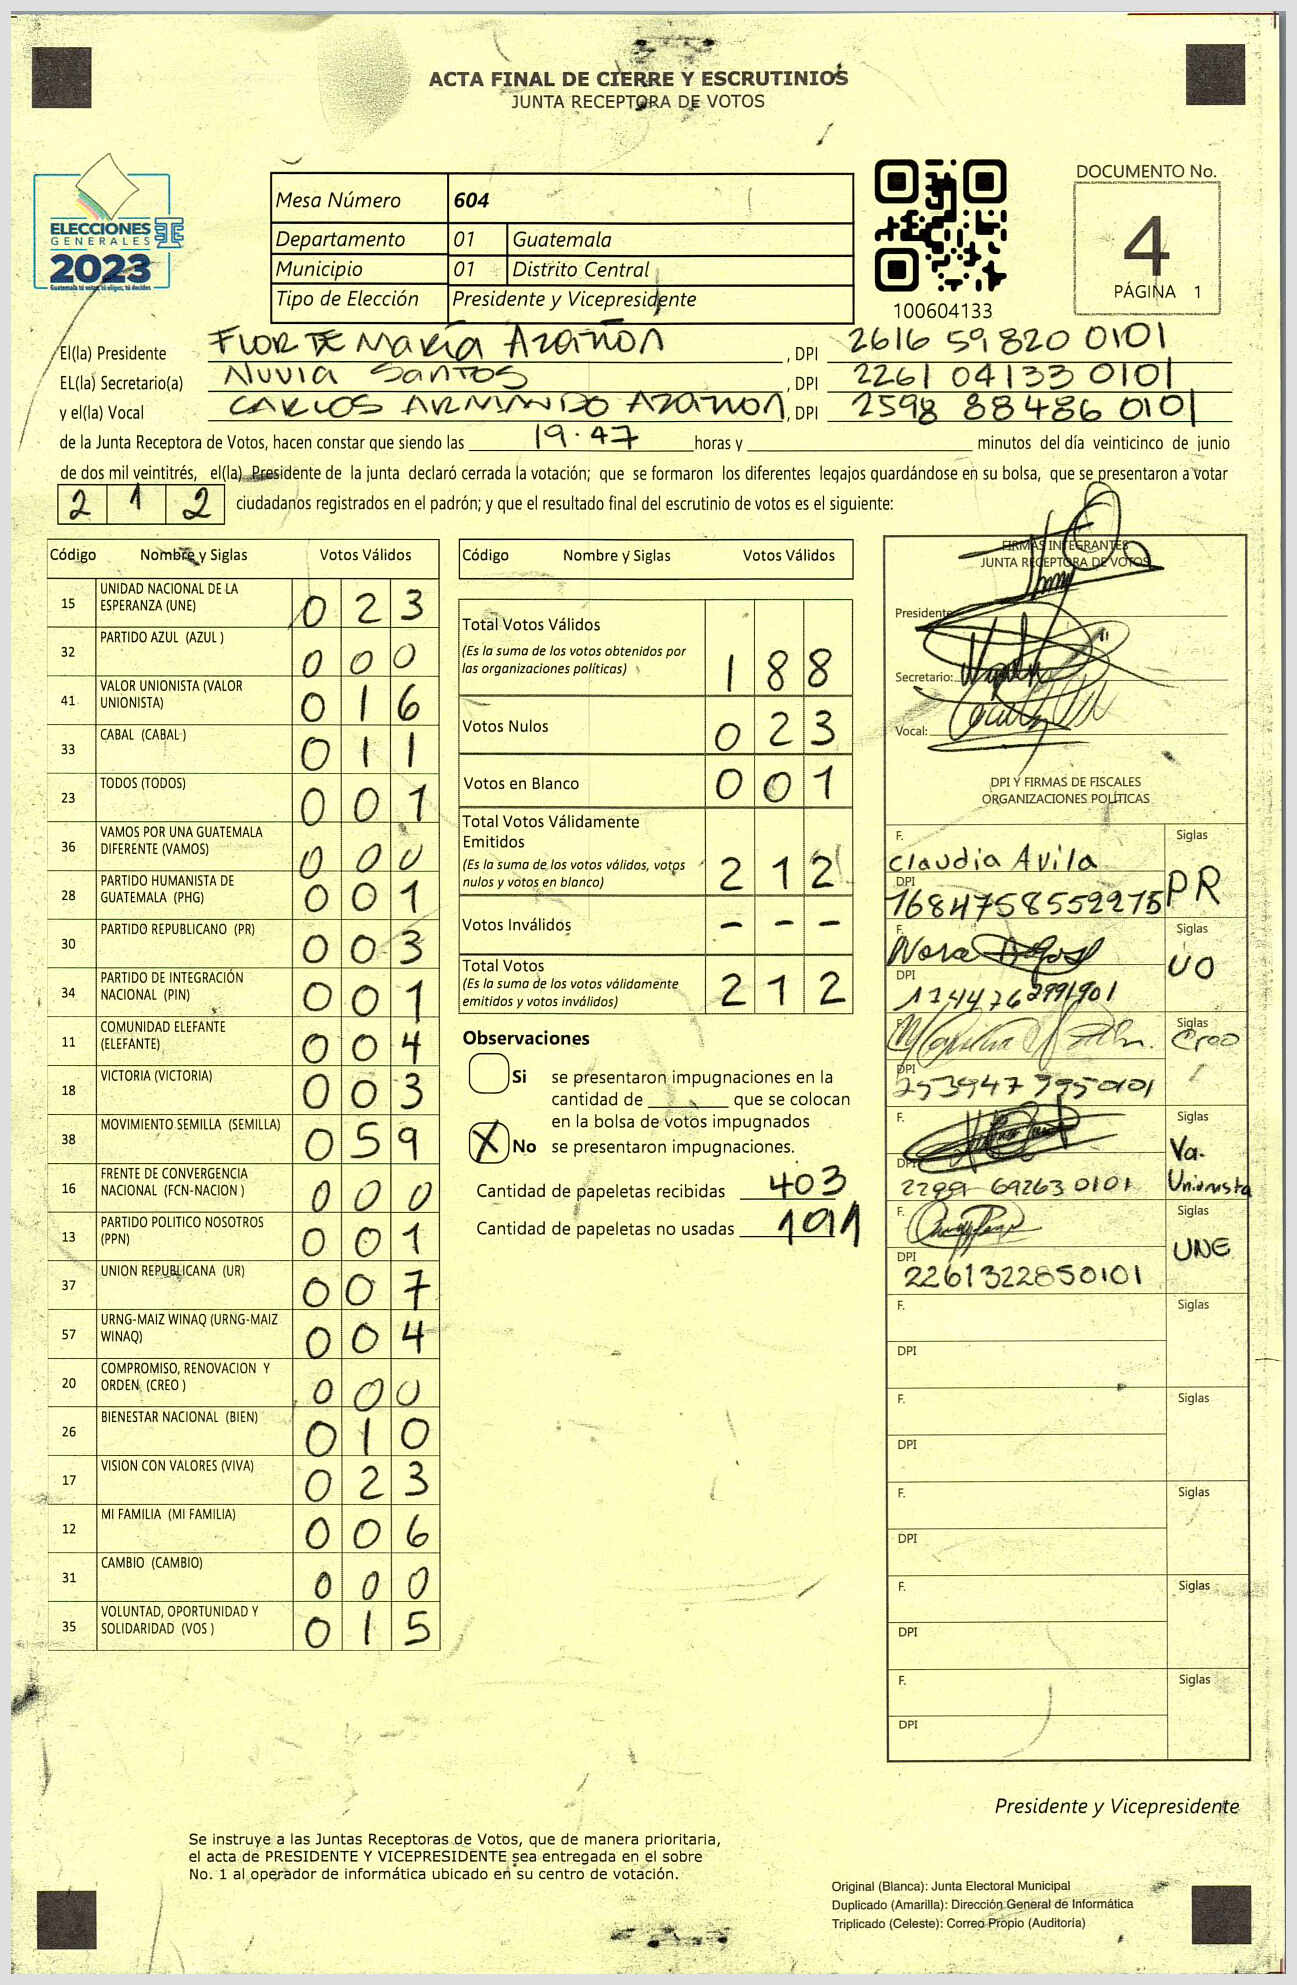 ACTA FINAL DE CIERRE Y ESCRUTINIOS
JUNTA RECEPTORA DE VOTOS
ELECCIONES
GENERALES
2023
Guatemala tú votas, tú eliges, tú decides
Mesa Número 604
Departamento 01 Guatemala
Municipio 01 Distrito Central
Tipo de Elección Presidente y Vicepresidente
100604133
DOCUMENTO No.
4
PÁGINA 1
El(la) Presidente FLOR DE MARÍA AZAÑON, DPI 2616 59820 0101
EL(la) Secretario(a) NUVIA SANTOS, DPI 2261 04133 0101
y el(la) Vocal CARLOS ARMANDO AZAÑON, DPI 2598 88486 0101
de la Junta Receptora de Votos, hacen constar que siendo las 19.47 horas y minutos del día veinticinco de junio
de dos mil veintitrés, el(la) Presidente de la junta declaró cerrada la votación; que se formaron los diferentes legajos guardándose en su bolsa, que se presentaron a votar
2 1 2 ciudadanos registrados en el padrón; y que el resultado final del escrutinio de votos es el siguiente:
Código Nombre y Siglas Votos Válidos
15 UNIDAD NACIONAL DE LA ESPERANZA (UNE) 0 2 3
32 PARTIDO AZUL (AZUL ) 0 0 0
41 VALOR UNIONISTA (VALOR UNIONISTA) 0 1 6
33 CABAL (CABAL ) 0 1 1
23 TODOS (TODOS) 0 0 1
36 VAMOS POR UNA GUATEMALA DIFERENTE (VAMOS) 0 0 0
28 PARTIDO HUMANISTA DE GUATEMALA (PHG) 0 0 1
30 PARTIDO REPUBLICANO (PR) 0 0 3
34 PARTIDO DE INTEGRACIÓN NACIONAL (PIN) 0 0 1
11 COMUNIDAD ELEFANTE (ELEFANTE) 0 0 4
18 VICTORIA (VICTORIA) 0 0 3
38 MOVIMIENTO SEMILLA (SEMILLA) 0 5 9
16 FRENTE DE CONVERGENCIA NACIONAL (FCN-NACION ) 0 0 0
13 PARTIDO POLITICO NOSOTROS (PPN) 0 0 1
37 UNION REPUBLICANA (UR) 0 0 7
57 URNG-MAIZ WINAQ (URNG-MAIZ WINAQ) 0 0 4
20 COMPROMISO, RENOVACION Y ORDEN (CREO ) 0 0 0
26 BIENESTAR NACIONAL (BIEN) 0 1 0
17 VISION CON VALORES (VIVA) 0 2 3
12 MI FAMILIA (MI FAMILIA) 0 0 6
31 CAMBIO (CAMBIO) 0 0 0
35 VOLUNTAD, OPORTUNIDAD Y SOLIDARIDAD (VOS ) 0 1 5
Código Nombre y Siglas Votos Válidos
Total Votos Válidos
(Es la suma de los votos obtenidos por
las organizaciones políticas) 1 8 8
Votos Nulos 0 2 3
Votos en Blanco 0 0 1
Total Votos Válidamente
Emitidos
(Es la suma de los votos válidos, votos
nulos y votos en blanco) 2 1 2
Votos Inválidos - - -
Total Votos
(Es la suma de los votos válidamente
emitidos y votos inválidos) 2 1 2
Observaciones
Si se presentaron impugnaciones en la
cantidad de ________ que se colocan
en la bolsa de votos impugnados
X No se presentaron impugnaciones.
Cantidad de papeletas recibidas 403
Cantidad de papeletas no usadas 191
FIRMAS INTEGRANTES
JUNTA RECEPTORA DE VOTOS
Presidente:
Secretario:
Vocal:
DPI Y FIRMAS DE FISCALES
ORGANIZACIONES POLÍTICAS
F. Claudia Avila Siglas PR
DPI 1684758552215
F. Nora Siglas UO
DPI
F. Siglas Creo
DPI 253947 3950101
F. Siglas Va. Unionista
DPI 2299 69263 0101
F. Siglas UNE
DPI 2261322850101
F. Siglas
DPI
F. Siglas
DPI
F. Siglas
DPI
F. Siglas
DPI
F. Siglas
DPI
Presidente y Vicepresidente
Se instruye a las Juntas Receptoras de Votos, que de manera prioritaria,
el acta de PRESIDENTE Y VICEPRESIDENTE sea entregada en el sobre
No. 1 al operador de informática ubicado en su centro de votación.
Original (Blanca): Junta Electoral Municipal
Duplicado (Amarilla): Dirección General de Informática
Triplicado (Celeste): Correo Propio (Auditoría)